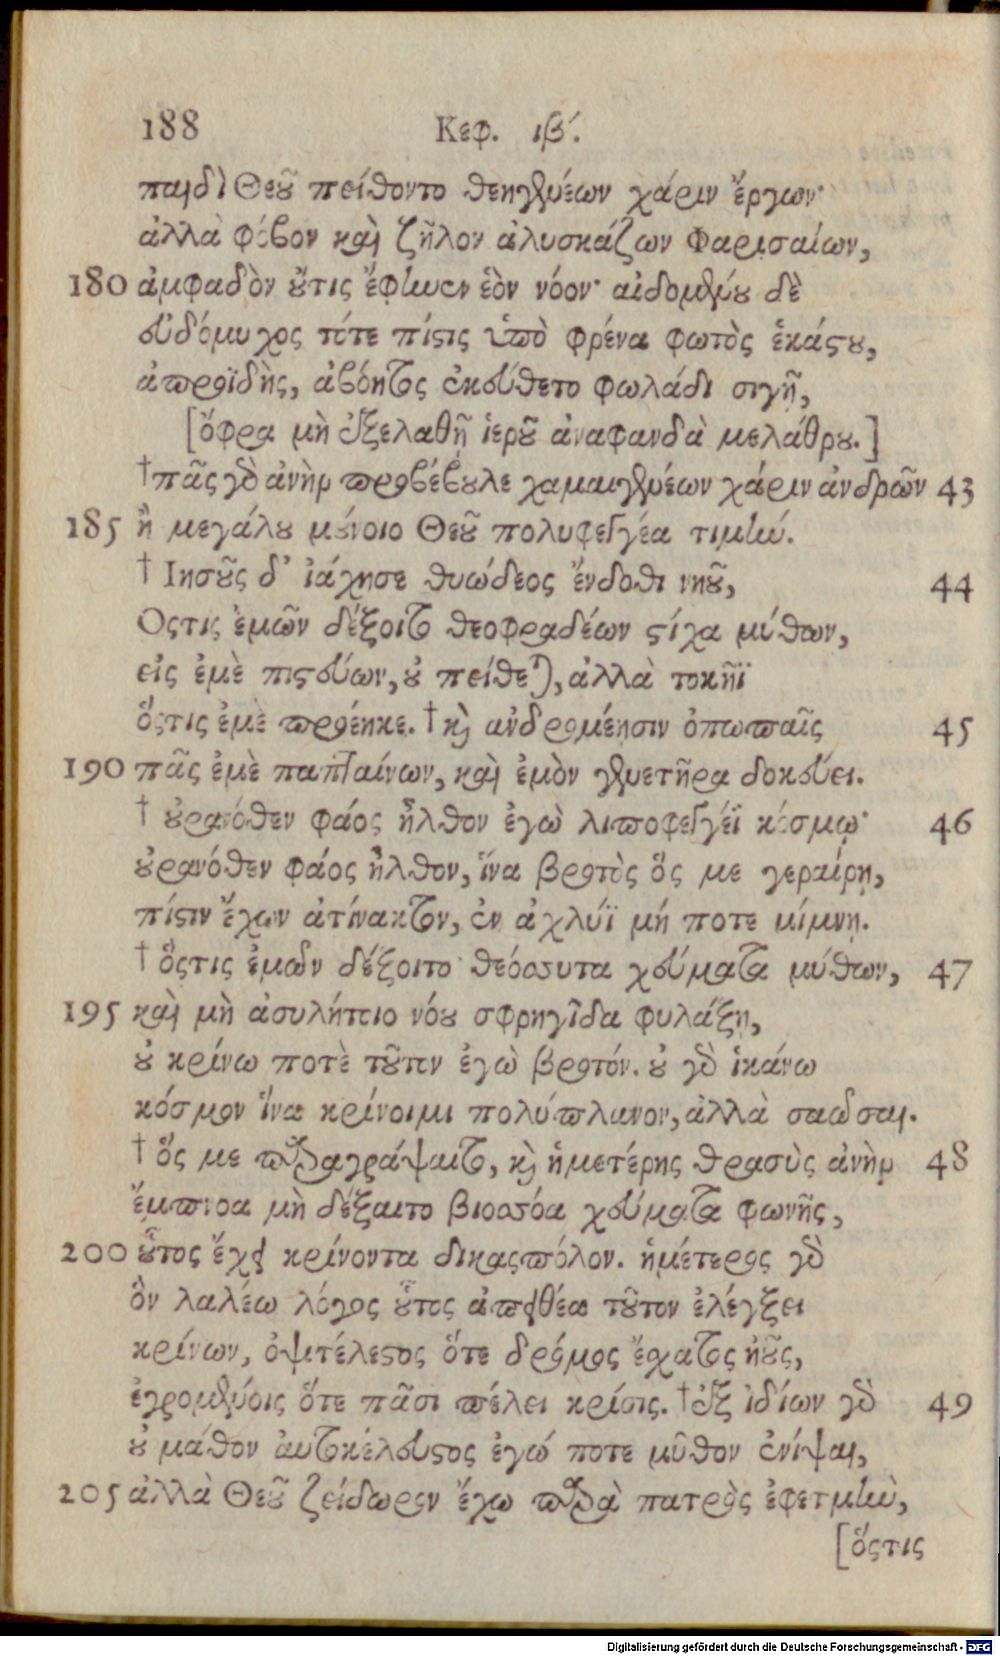 188 Κεφ. ιβ΄.
παιδὶ Θεοῦ πείθοντο θεηγενέων χάριν ἔργων·
ἀλλὰ φόβον καὶ ζῆλον ἀλυσκάζων Φαρισαίων,
180 ἀμφαδὸν οὔτις ἔφηνεν ἑὸν νόον· αἰδομένου δὲ
ἐνδόμυχος τότε πίστις ὑπὸ φρένα φωτὸς ἑκάστου,
ἀπροϊδὴς, ἀβόητος ἐκεύθετο φωλάδι σιγῇ,
[ὄφρα μὴ ἐξελαθῇ ἱεροῦ ἀναφανδὰ μελάθρου.]
†πᾶς γὰρ ἀνὴρ προβέβουλε χαμαιγενέων χάριν ἀνδρῶν 43
185 ἢ μεγάλου μούνοιο Θεοῦ πολυφεγγέα τιμήν.
† Ιησοῦς δ᾽ ἰάχησε θυώδεος ἔνδοθι νηοῦ, 44
Οστις ἐμῶν δέξοιτο θεοφραδέων στίχα μύθων,
εἰς ἐμὲ πιστεύων, οὐ πείθεται, ἀλλὰ τοκῆϊ
ὅστις ἐμὲ προέηκε. † καὶ ἀνδρομέησιν ὀπωπαῖς 45
190 πᾶς ἐμὲ παπταίνων, καὶ ἐμὸν γενετῆρα δοκεύει.
† οὐρανόθεν φάος ἦλθον ἐγὼ λιποφεγγέϊ κόσμῳ· 46
οὐρανόθεν φάος ἦλθον, ἵνα βροτὸς ὅς με γεραίρῃ,
πίστιν ἔχων ἀτίνακτον, ἐν ἀχλύϊ μή ποτε μίμνῃ.
† ὅστις ἐμῶν δέξοιτο θεόσσυτα χεύματα μύθων, 47
195 καὶ μὴ ἀσυλήτοιο νόου σφρηγῖδα φυλάξῃ,
οὐ κρίνω ποτὲ τοῦτον ἐγὼ βροτόν. οὐ γὰρ ἱκάνω
κόσμον ἵνα κρίνοιμι πολύπλανον, ἀλλὰ σαῶσαι.
† ὅς με παραγράψαιτο, καὶ ἡμετέρης θρασὺς ἀνὴρ 48
ἔμπνοα μὴ δέξαιτο βιοσσόα χεύματα φωνῆς,
200 οὗτος ἔχει κρίνοντα δικασπόλον. ἡμέτερος γὰρ
ὃν λαλέω λόγος οὗτος ἀπειθέα τοῦτον ἐλέγξει
κρίνων, ὀψιτέλεστος ὅτε δρόμος ἔσχατος ἠοῦς,
ἐγρομένοις ὅτε πᾶσι πέλει κρίσις. † ἐξ ἰδίων γὰρ 49
οὐ μάθον αὐτοκέλευστος ἐγώ ποτε μῦθον ἐνίψαι,
205 ἀλλὰ Θεοῦ ζείδωρον ἔχω παρὰ πατρὸς ἐφετμὴν,
[ὅστις
Digitalisierung gefördert durch die Deutsche Forschungsgemeinschaft - DFG